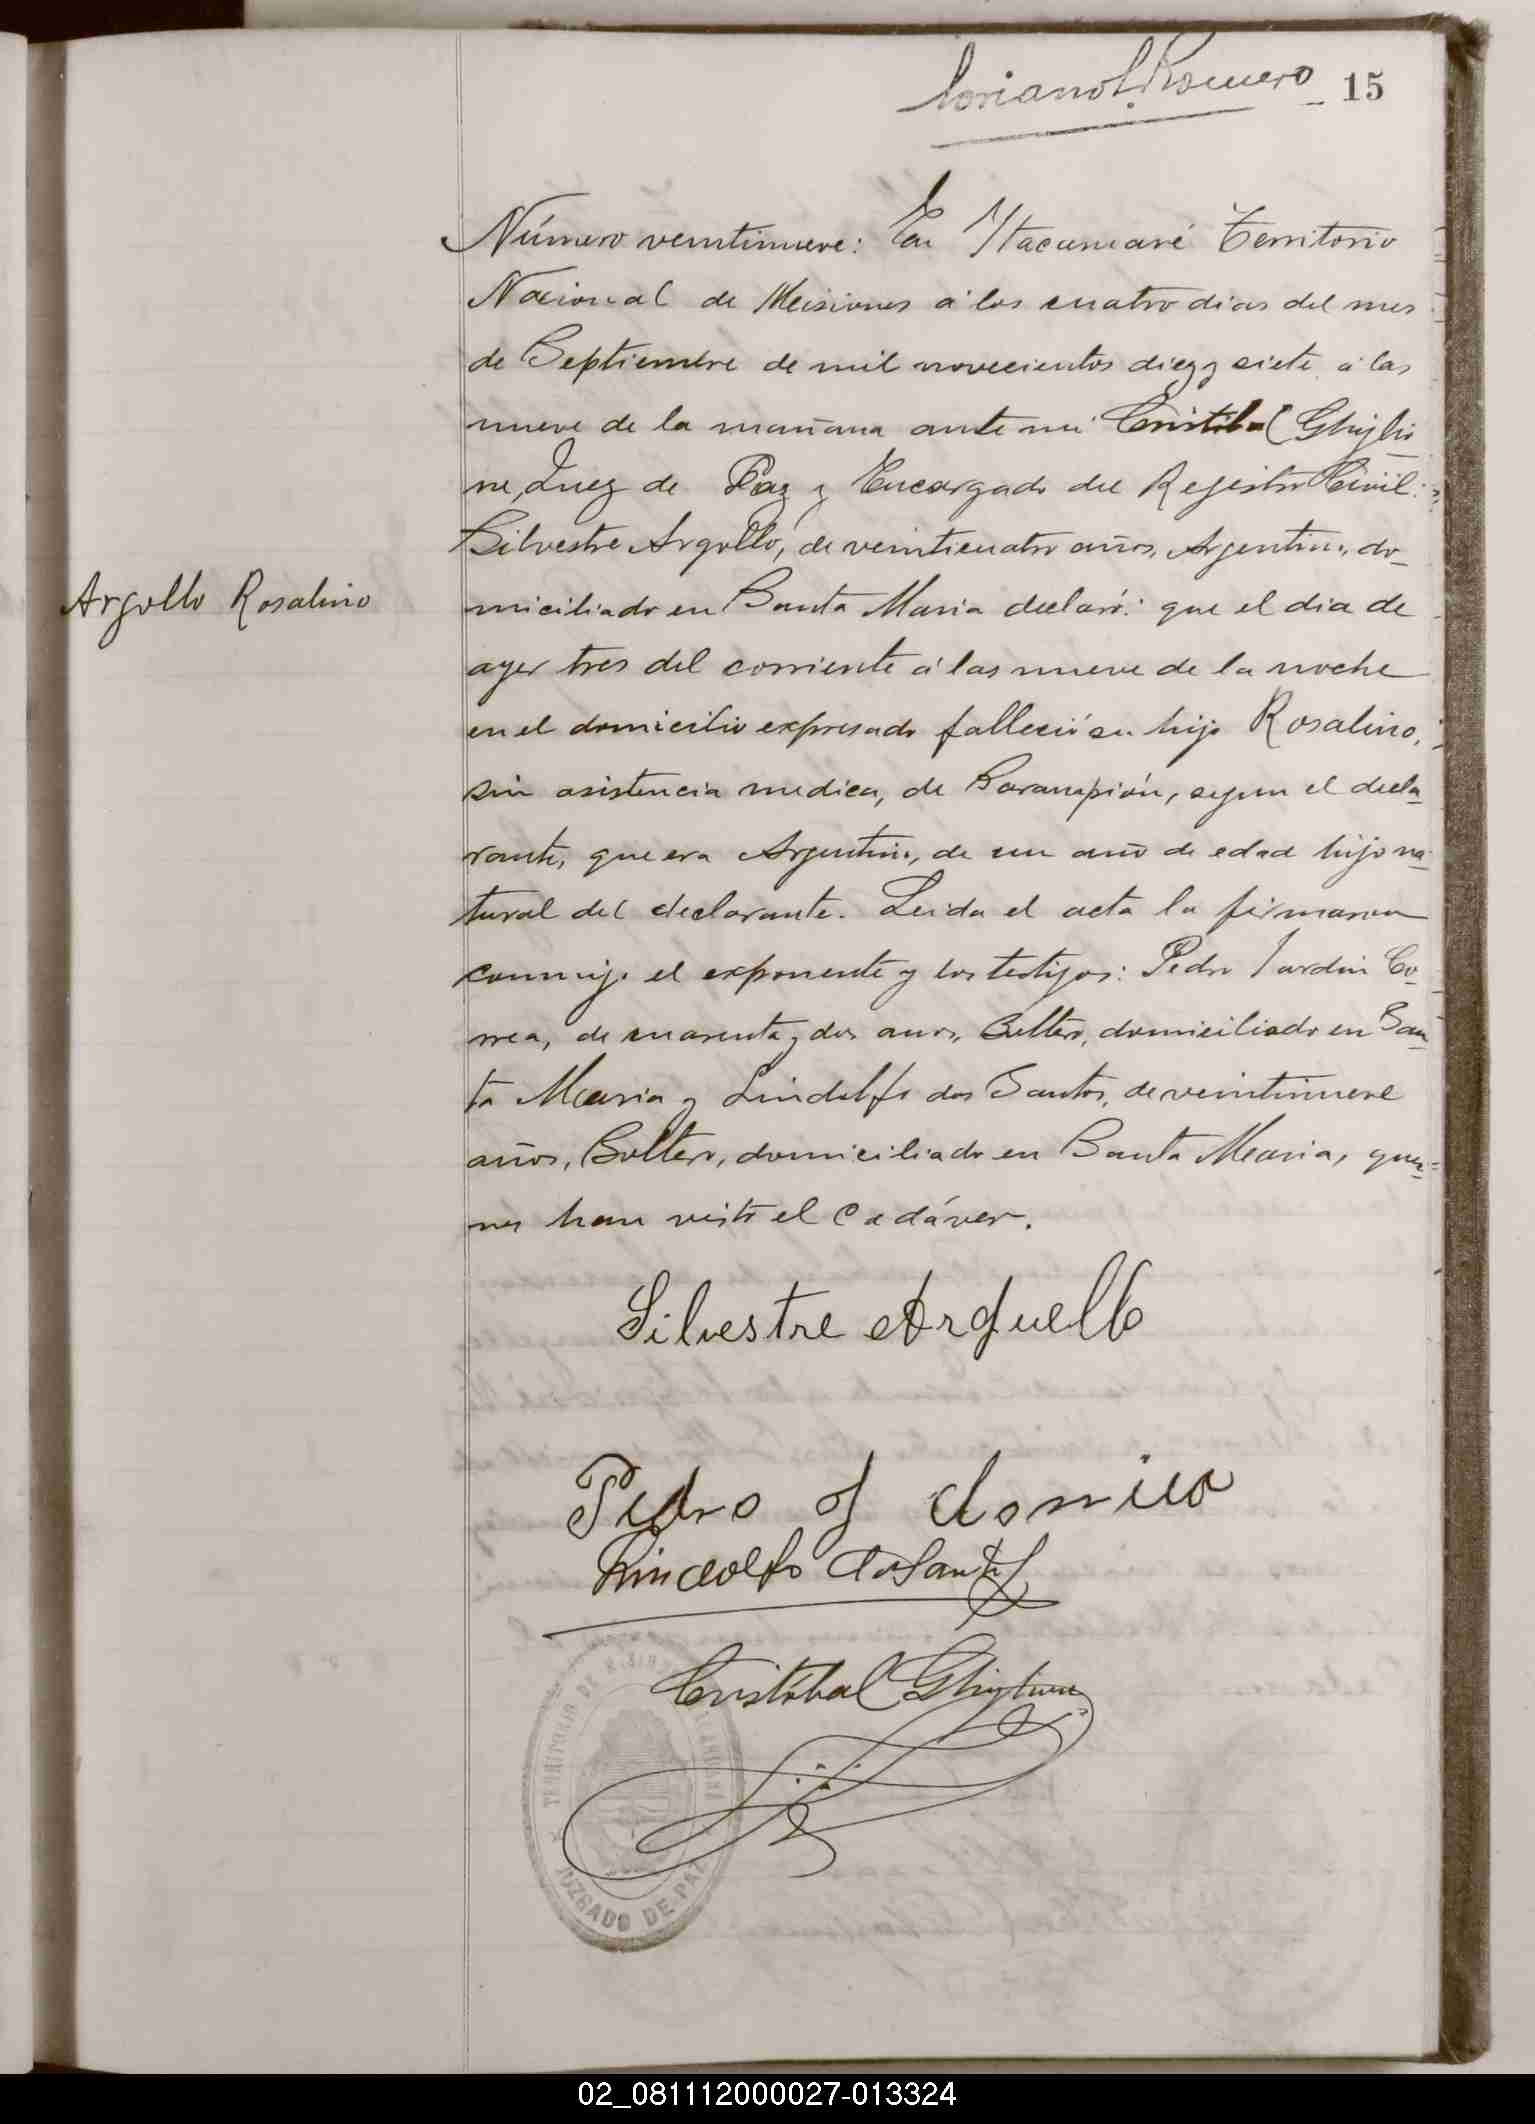 Coriano L. Romero 15
Número veintinueve: En Itacuararé Territorio
Nacional de Misiones á los cuatro dias del mes
de Septiembre de mil novecientos diez y siete á las
nueve de la mañana ante mi Cristóbal Ghiglio
ne, Juez de Paz y Encargado del Registro Civil:
Silvestre Argollo, de veinticuatro años, Argentino, do-
Argollo Rosalino
miciliado en Santa Maria declaró: que el dia de
ayer tres del corriente á las nueve de la noche
en el domicilio expresado falleció su hijo Rosalino,
sin asistencia medica, de Sarampión, segun el decla-
rante, que era Argentino, de un año de edad hijo na-
tural del declarante. Leida el acta la firmaron
conmigo el exponente y los testigos: Pedro Jardin Co-
rrea, de cuarenta y dos anos, Soltero, domiciliado en San-
ta Maria y Lindolfo dos Santos, de veintinueve
años, Soltero, domiciliado en Santa Maria, quie-
nes han visto el cadáver.
Silvestre Arguello
Pedro J
Lindolfo doSantos
Cristóbal Ghiglione
TERRITORIO DE MISIONES
JUZGADO DE PAZ
02_081112000027-013324